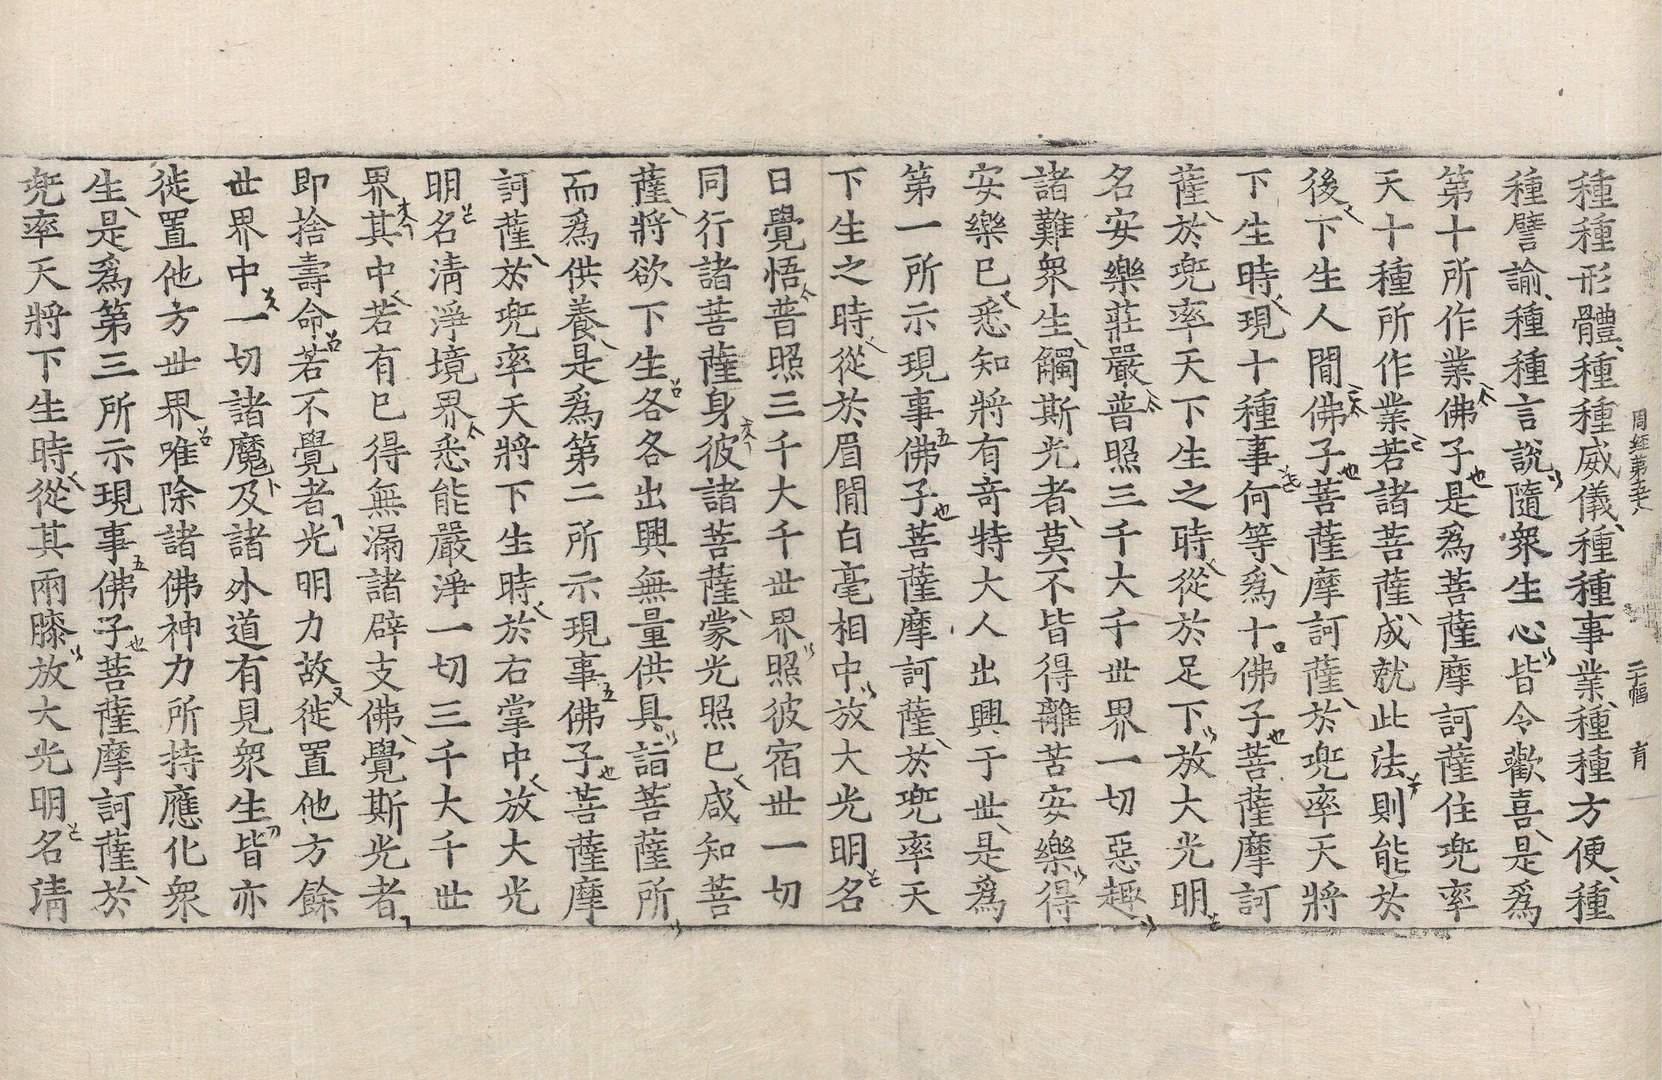 周經第五十八
種種形體種種威儀種種事業種種方便種
種譬諭種種言說隨衆生心皆令歡喜是爲
第十所作業佛子是爲菩薩摩訶薩住兜率
天十種所作業若諸菩薩成就此法則能於
後下生人閒佛子菩薩摩訶薩於兜率天將
下生時現十種事何等爲十佛子菩薩摩訶
薩於兜率天下生之時從於足下放大光明
名安樂莊嚴普照三千大千世界一切惡趣
諸難衆生觸斯光者莫不皆得離苦安樂得
安樂已悉知將有奇特大人出興于世是爲
第一所示現事佛子菩薩摩訶薩於兜率天
下生之時從於眉閒白毫相中放大光明名
曰覺悟普照三千大千世界照彼宿世一切
同行諸菩薩身彼諸菩薩蒙光照已咸知菩
薩將欲下生各各出興無量供具詣菩薩所
而爲供養是爲第二所示現事佛子菩薩摩
訶薩於兜率天將下生時於右掌中放大光
明名清淨境界悉能嚴淨一切三千大千世
界其中若有已得無漏諸辟支佛覺斯光者
即捨壽命若不覺者光明力故徙置他方餘
世界中一切諸魔及諸外道有見衆生皆亦
徙置他方世界唯除諸佛神力所持應化衆
生是爲第三所示現事佛子菩薩摩訶薩於
兜率天將下生時從其兩膝放大光明名清